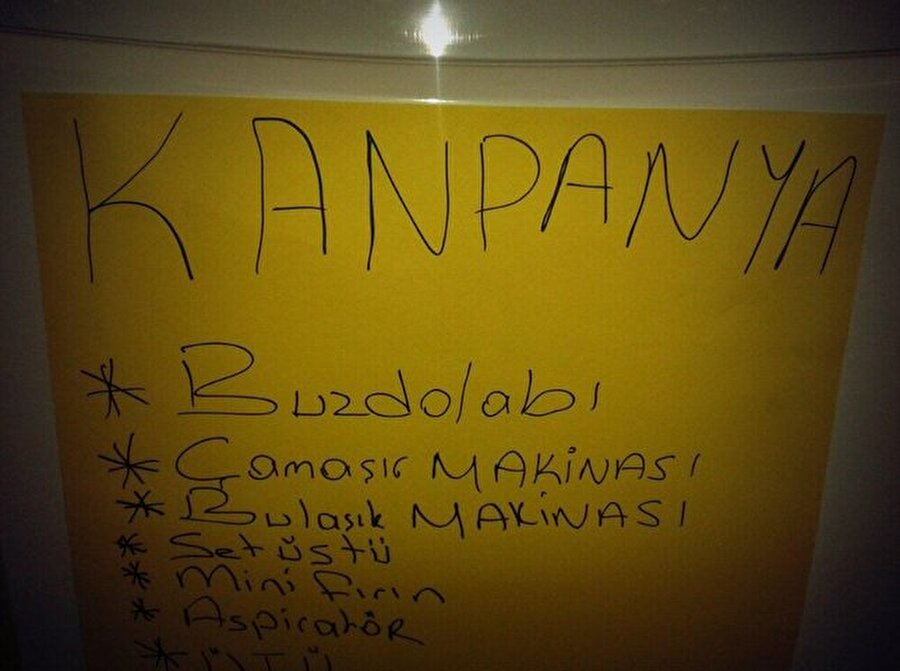 KANPANYA
* Buzdolabı
* Çamaşır MAKİNASI
* Bulaşık MAKİNASI
* Set üstü
* Mini fırın
* Aspiratör
* ÜTÜ